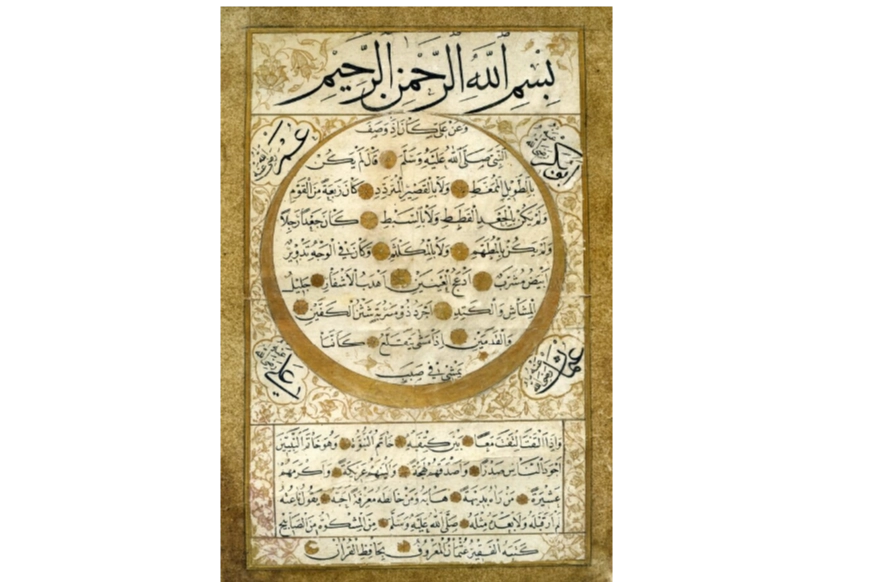 بسم الله الرحمن الرحيم
وعن علي كان اذ وصف
النبي صلى الله عليه وسلم قال لم يكن
بالطويل الممغط ولا بالقصير المتردد كان ربعة من القوم
ولم يكن بالجعد القطط ولا بالسبط كان جعدا رجلا
ولم يكن بالمطهم ولا بالمكلثم وكان في الوجه تدوير
ابيض مشرب ادعج العينين اهدب الاشفار جليل
المشاش والكتد اجرد ذو مسربة شثن الكفين
والقدمين اذا مشى يتقلع كانما
يمشي في صبب
ابو بكر
عمر رضي الله عنه
عثمان رضي الله عنه
علي
واذا التفت التفت معا بين كتفيه خاتم النبوة وهو خاتم النبيين
اجود الناس صدرا واصدقهم لهجة والينهم عريكة واكرمهم
عشيرة من رآه بديهة هابه ومن خالطه معرفة احبه يقول ناعته
لم ار قبله ولا بعده مثله صلى الله عليه وسلم من المشكوة من الصابيح
كتبه الفقير عثمان المعروف بحافظ القرآن